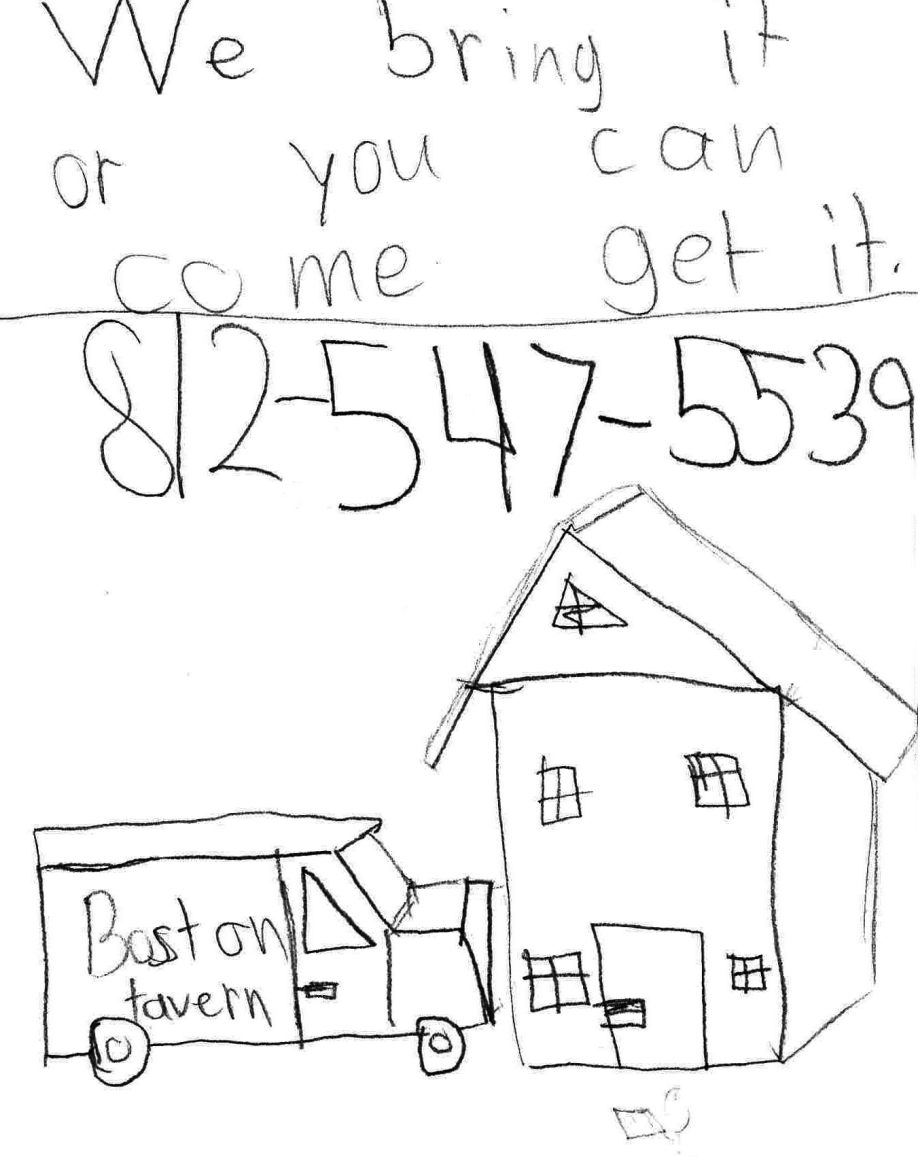 We bring it
or you can
come get it.
812-547-5539
Boston
tavern